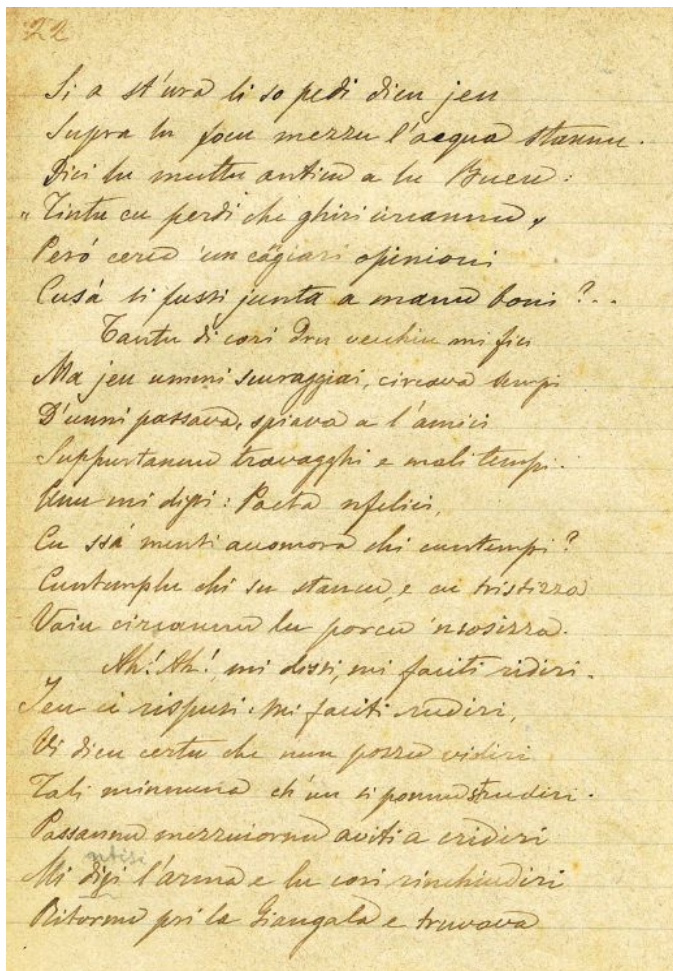 22
Si a st'ura li so pedi dicu jeu
Supra lu focu mezzu l'acqua stannu.
Dici lu muttu anticu a lu Bucu:
"Tintu cu perdi chi ghiri circannu,
Peró cercu 'un cágiari opinioni
Cusá si fussi junta a manu boni?..
Tantu di cori dru vecchiu mi fici
Ma jeu ummi scuraggiai, circava tempi
D'unni passava, spiava a l'amici
Suppurtannu travagghi e mali tempi.
Unu mi dissi: Poeta nfelici,
Cu ssá menti accomora chi cuntempi?
Cuntemplu chi su stancu, e cu tristizza
Vaiu circannu lu porcu 'nsosizza.
Ah! Ah! mi dissi, mi faciti ridiri.
Jeu ci rispusi: Mi faciti rudiri,
Vi dicu certu che nun pozzu vidiri
Tali minnina ch'un si ponnu strudiri.
Passannu mezzuiornu aviti a cridiri
ntisi
Mi digi l'arma e lu cori rinchiudiri
Ritornu pri la Giangala e truvava